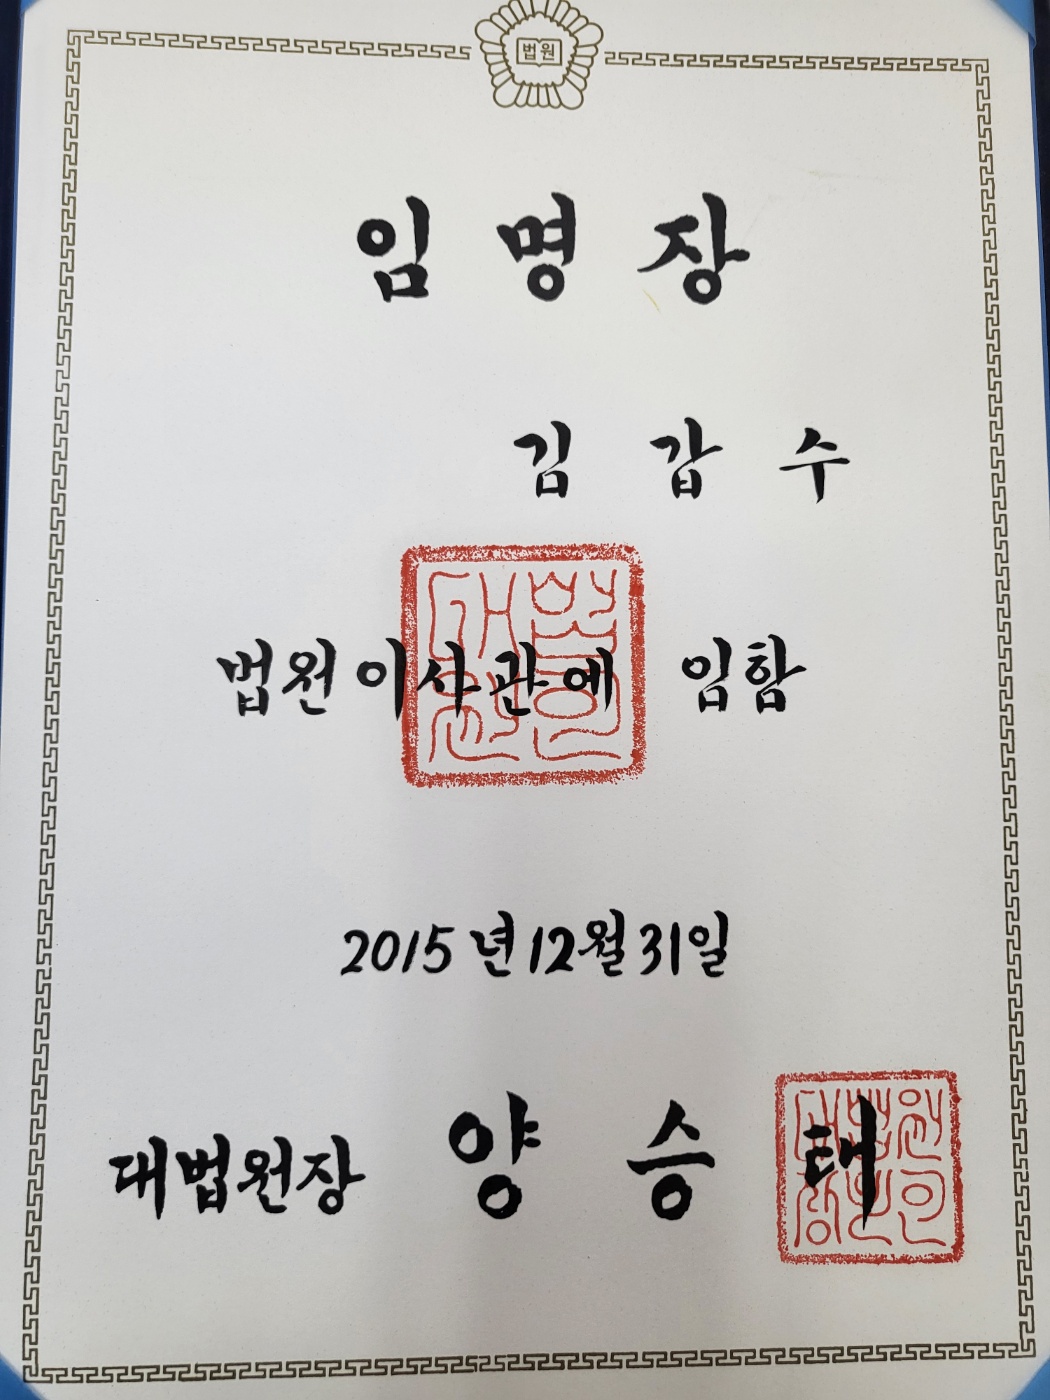 법원
임명장
김갑수
법원이사관에 임함
2015년 12월 31일
대법원장 양승태